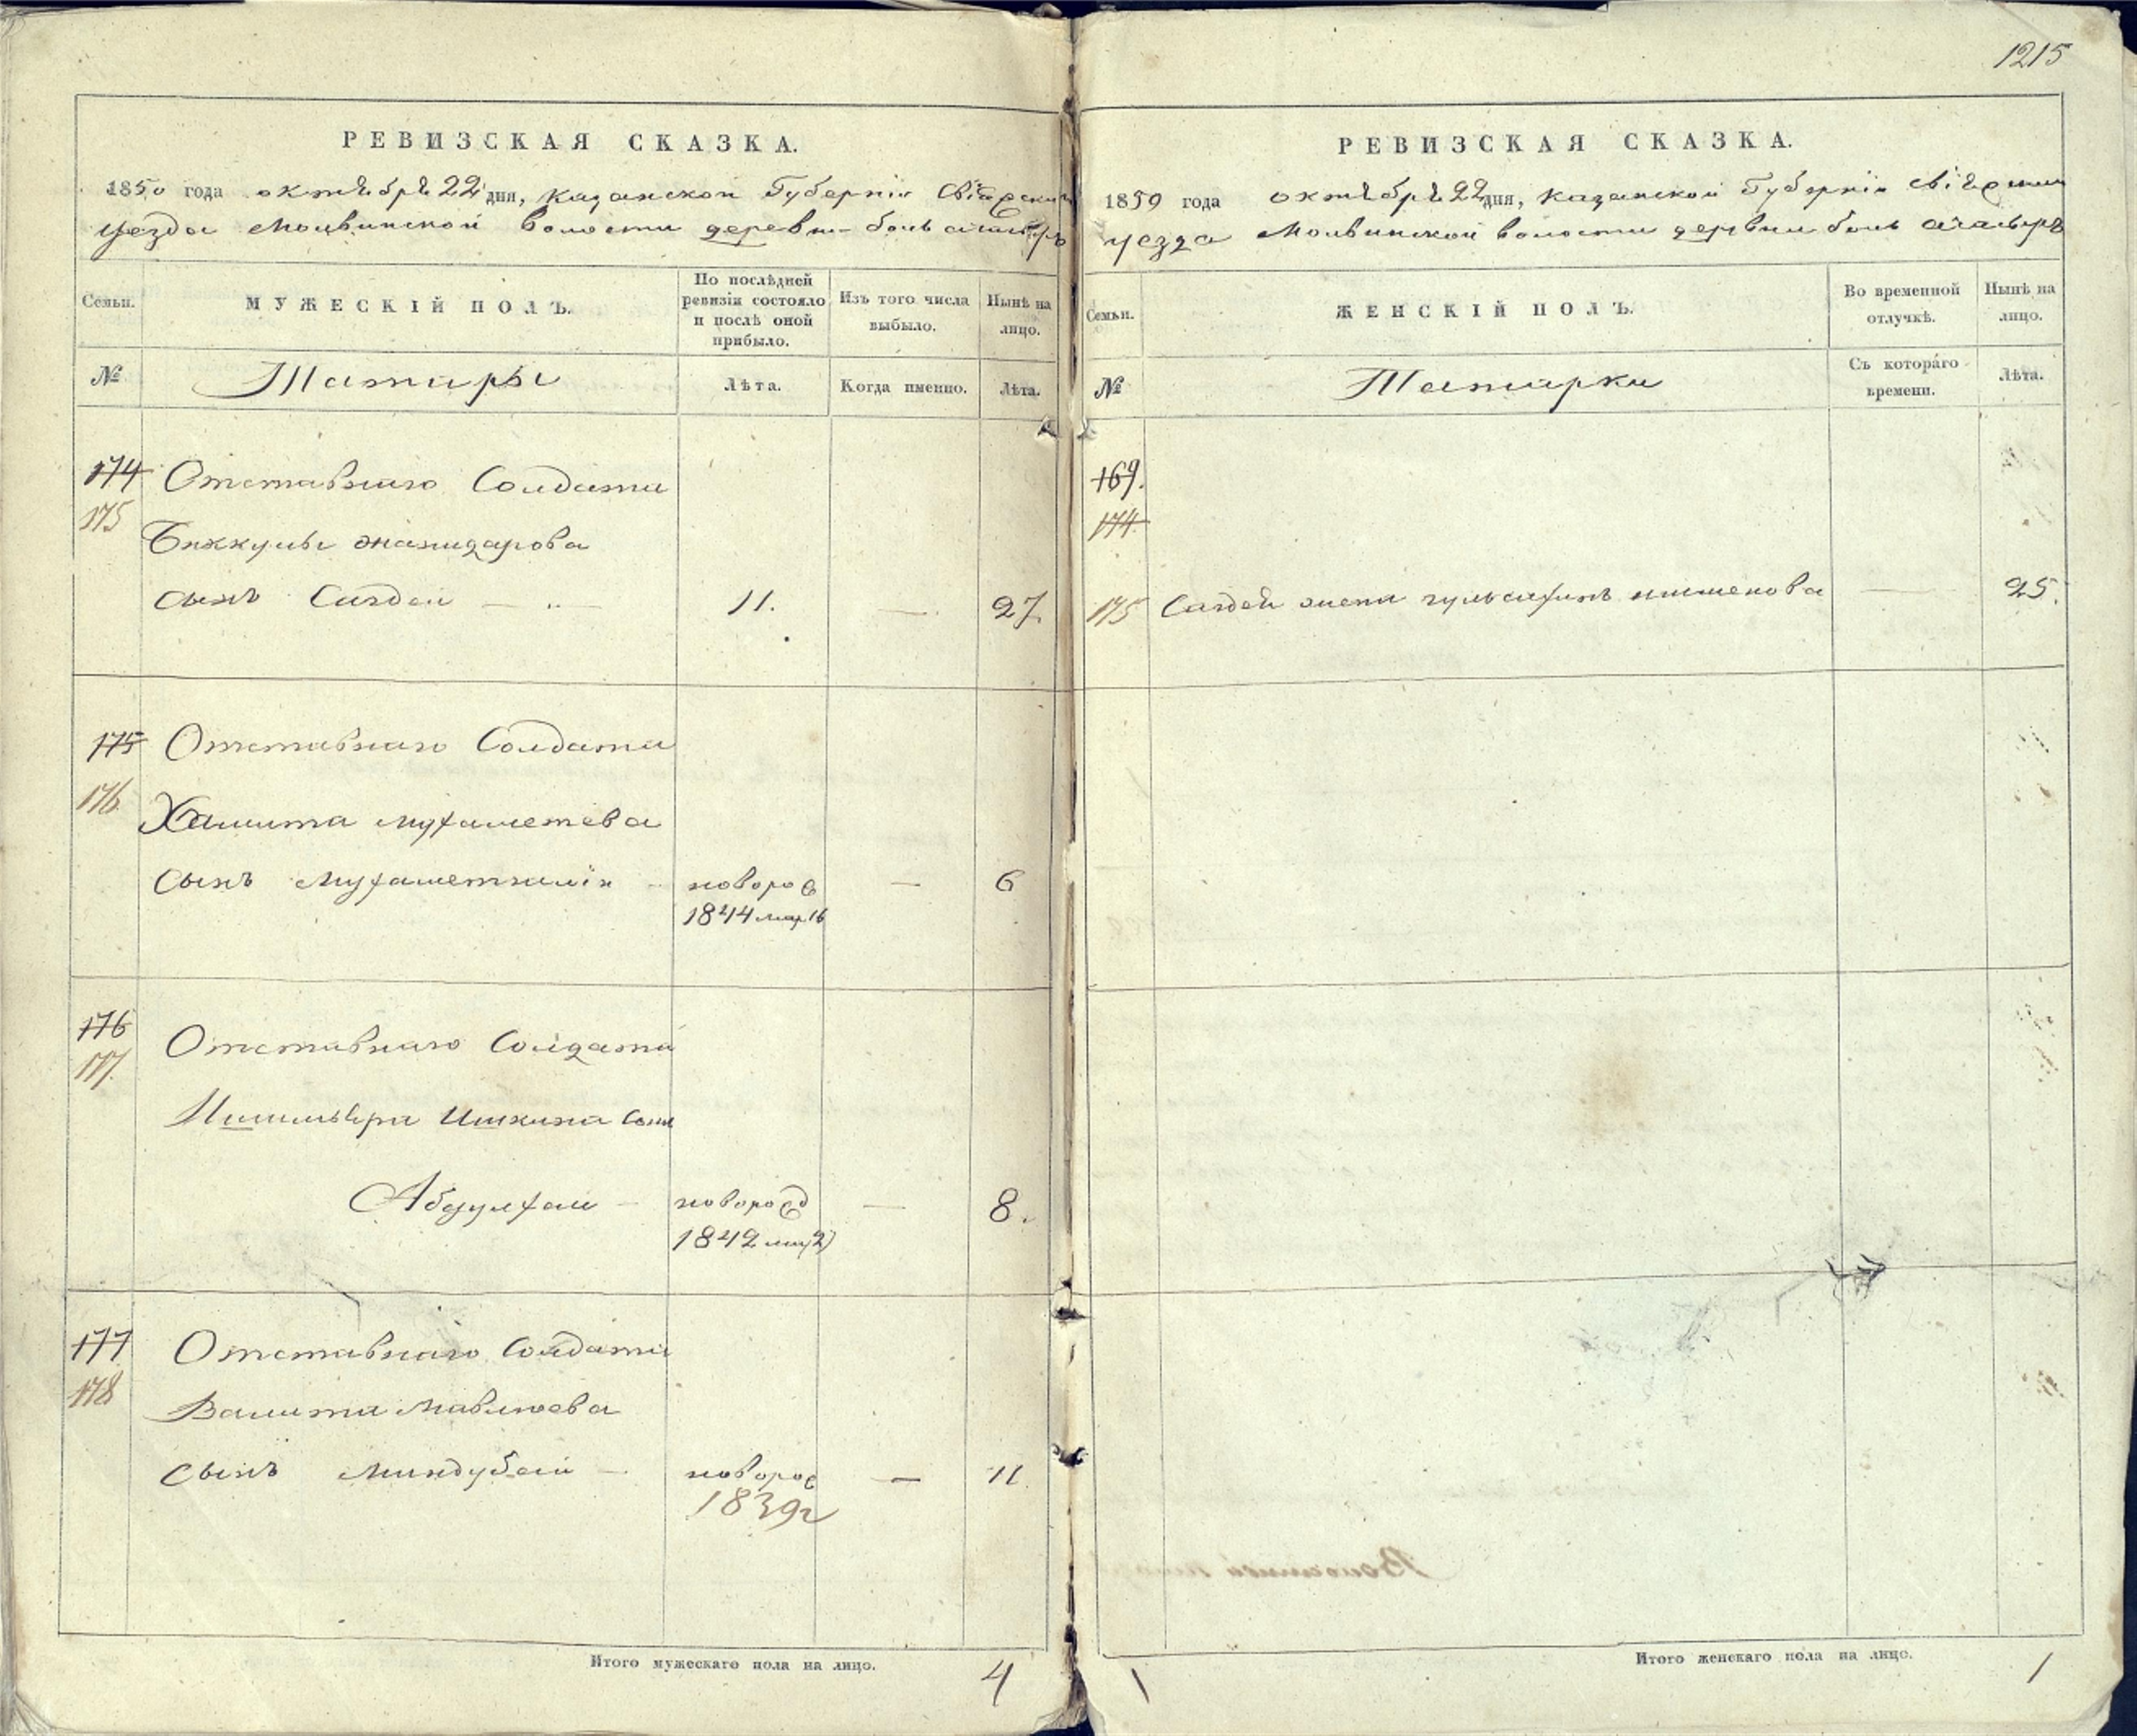 1215
РЕВИЗСКАЯ СКАЗКА.
1850 года октября 22 дня, Казанской Губернiи Свiяжскаго
уезда Молвинской волости деревни боль ачасырь
Семьи. МУЖЕСКIЙ ПОЛЪ. По послѣдней ревизiи состояло и послѣ оной прибыло. Изъ того числа выбыло. Нынѣ на лицо.
№ Татары Лѣта. Когда именно. Лѣта.
174 Отставнаго Солдата
175
Биккулы
сынъ Сагдей 11. — 27.
175 Отставнаго Солдата
176
Хамита Мухаметева
сынъ Мухаметгалiи новорож — 6
1844 мар. 16
176 Отставнаго Солдата
177.
Ишкина сынъ
Абдулхаи новорожд — 8.
1842
177 Отставнаго Солдата
178
Валита Мавлюева
сынъ Миндубай — новорож — 11.
1839г
Итого мужескаго пола на лицо. 4
РЕВИЗСКАЯ СКАЗКА.
1850 года октября 22 дня, Казанской Губернiи Свiяжскаго
уезда Молвинской волости деревни боль ачасырь
Семьи. ЖЕНСКIЙ ПОЛЪ. Во временной отлучкѣ. Нынѣ на лицо.
№ Татарки Съ котораго времени. Лѣта.
169.
174.
175 Сагдей жена — 25.
Итого женскаго пола на лицо. 1